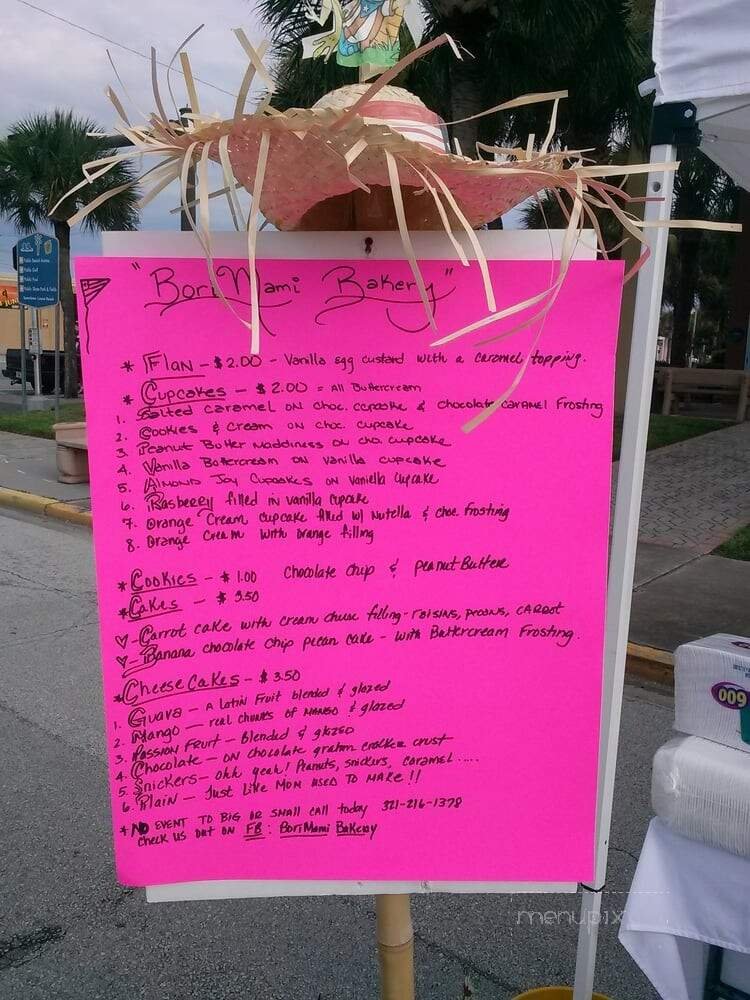 "BoriMami Bakery"
* Flan - $2.00 - Vanilla egg custard with a caramel topping.
* Cupcakes - $2.00 = All Buttercream
1. Salted caramel on choc. cupcake & chocolate caramel Frosting
2. Cookies & Cream on choc. cupcake
3. Peanut Butter Maddiness on cho. cupcake
4. Vanilla Buttercream on Vanilla cupcake
5. Almond Joy Cupcakes on vaniella cupcake
6. Rasberry filled in vanilla cupcake
7. Orange Cream cupcake filled w/ Nutella & choc. frosting
8. Orange Cream with orange filling
* Cookies - $1.00 Chocolate chip & peanut Butter
* Cakes - $3.50
♡ - Carrot cake with cream cheese filling - raisins, pecans, carrot
♡ - Banana chocolate chip pecan cake - with Buttercream Frosting.
* CheeseCakes - $3.50
1. Guava - a Latin Fruit blended & glazed
2. Mango - real chunks of mango & glazed
3. Passion Fruit - Blended & glazed
4. Chocolate - on chocolate graham cracker crust
5. Snickers - ohh yeah! Peanuts, snickers, caramel.....
6. Plain - Just like Mom used to make!!
* NO EVENT TO BIG OR SMALL call today 321-216-1378
check us out on FB: BoriMami Bakery
009
menupix